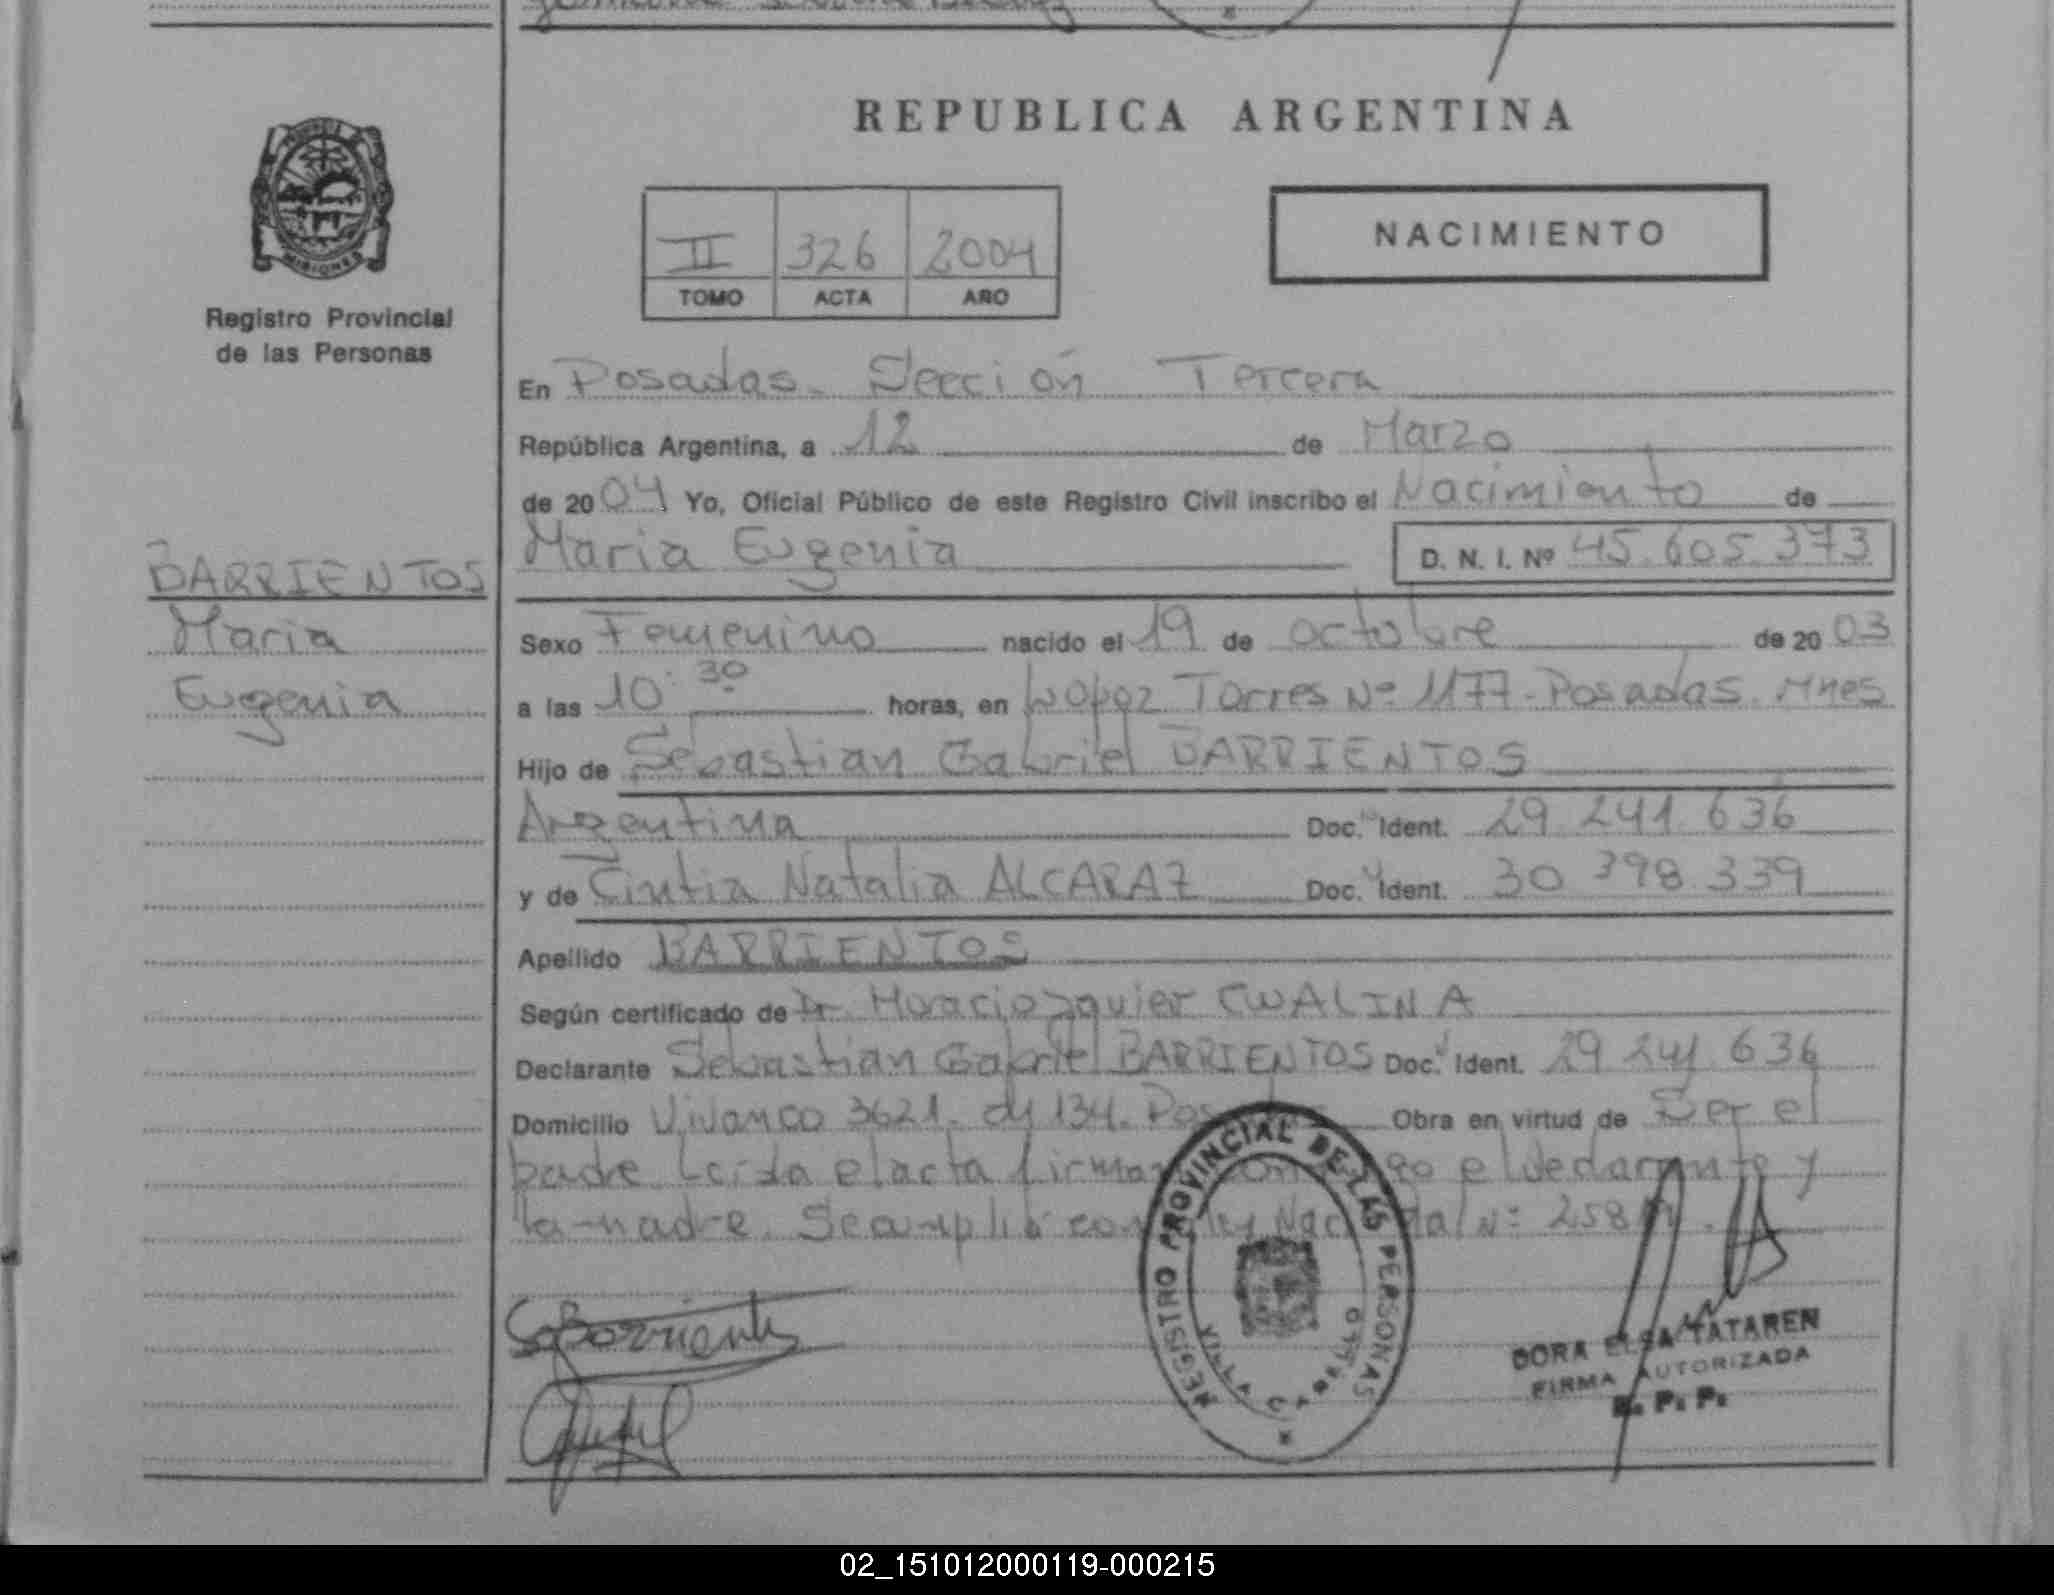 REPUBLICA ARGENTINA
MISIONES
Registro Provincial
de las Personas
II 326 2004
TOMO ACTA AÑO
NACIMIENTO
En Posadas - Sección Tercera
República Argentina, a 12 de Marzo
de 2004 Yo, Oficial Público de este Registro Civil inscribo el Nacimiento de
Maria Eugenia D. N. I. Nº 45.605.373
BARRIENTOS
Maria
Eugenia
Sexo Femenino nacido el 19 de octubre de 2003
a las 10:30 horas, en Lopez Torres Nº 1177 - Posadas. Mnes
Hijo de Sebastian Gabriel BARRIENTOS
Argentina Doc. Ident. 29.241.636
y de Cintia Natalia ALCARAZ Doc. Ident. 30.398.339
Apellido BARRIENTOS
Según certificado de Dr. Horacio Javier CWALINA
Declarante Sebastian Gabriel BARRIENTOS Doc. Ident. 29.241.636
Domicilio Vivanco 3621. ch 134. Posadas Obra en virtud de Ser el
padre Leida el acta firman conmigo el declarante y
la madre. Se cumplió con ley Nacional Nº
SGBarrientos
REGISTRO PROVINCIAL DE LAS PERSONAS
VILLA
DORA ELSA TATAREN
FIRMA AUTORIZADA
R. P. P.
02_151012000119-000215